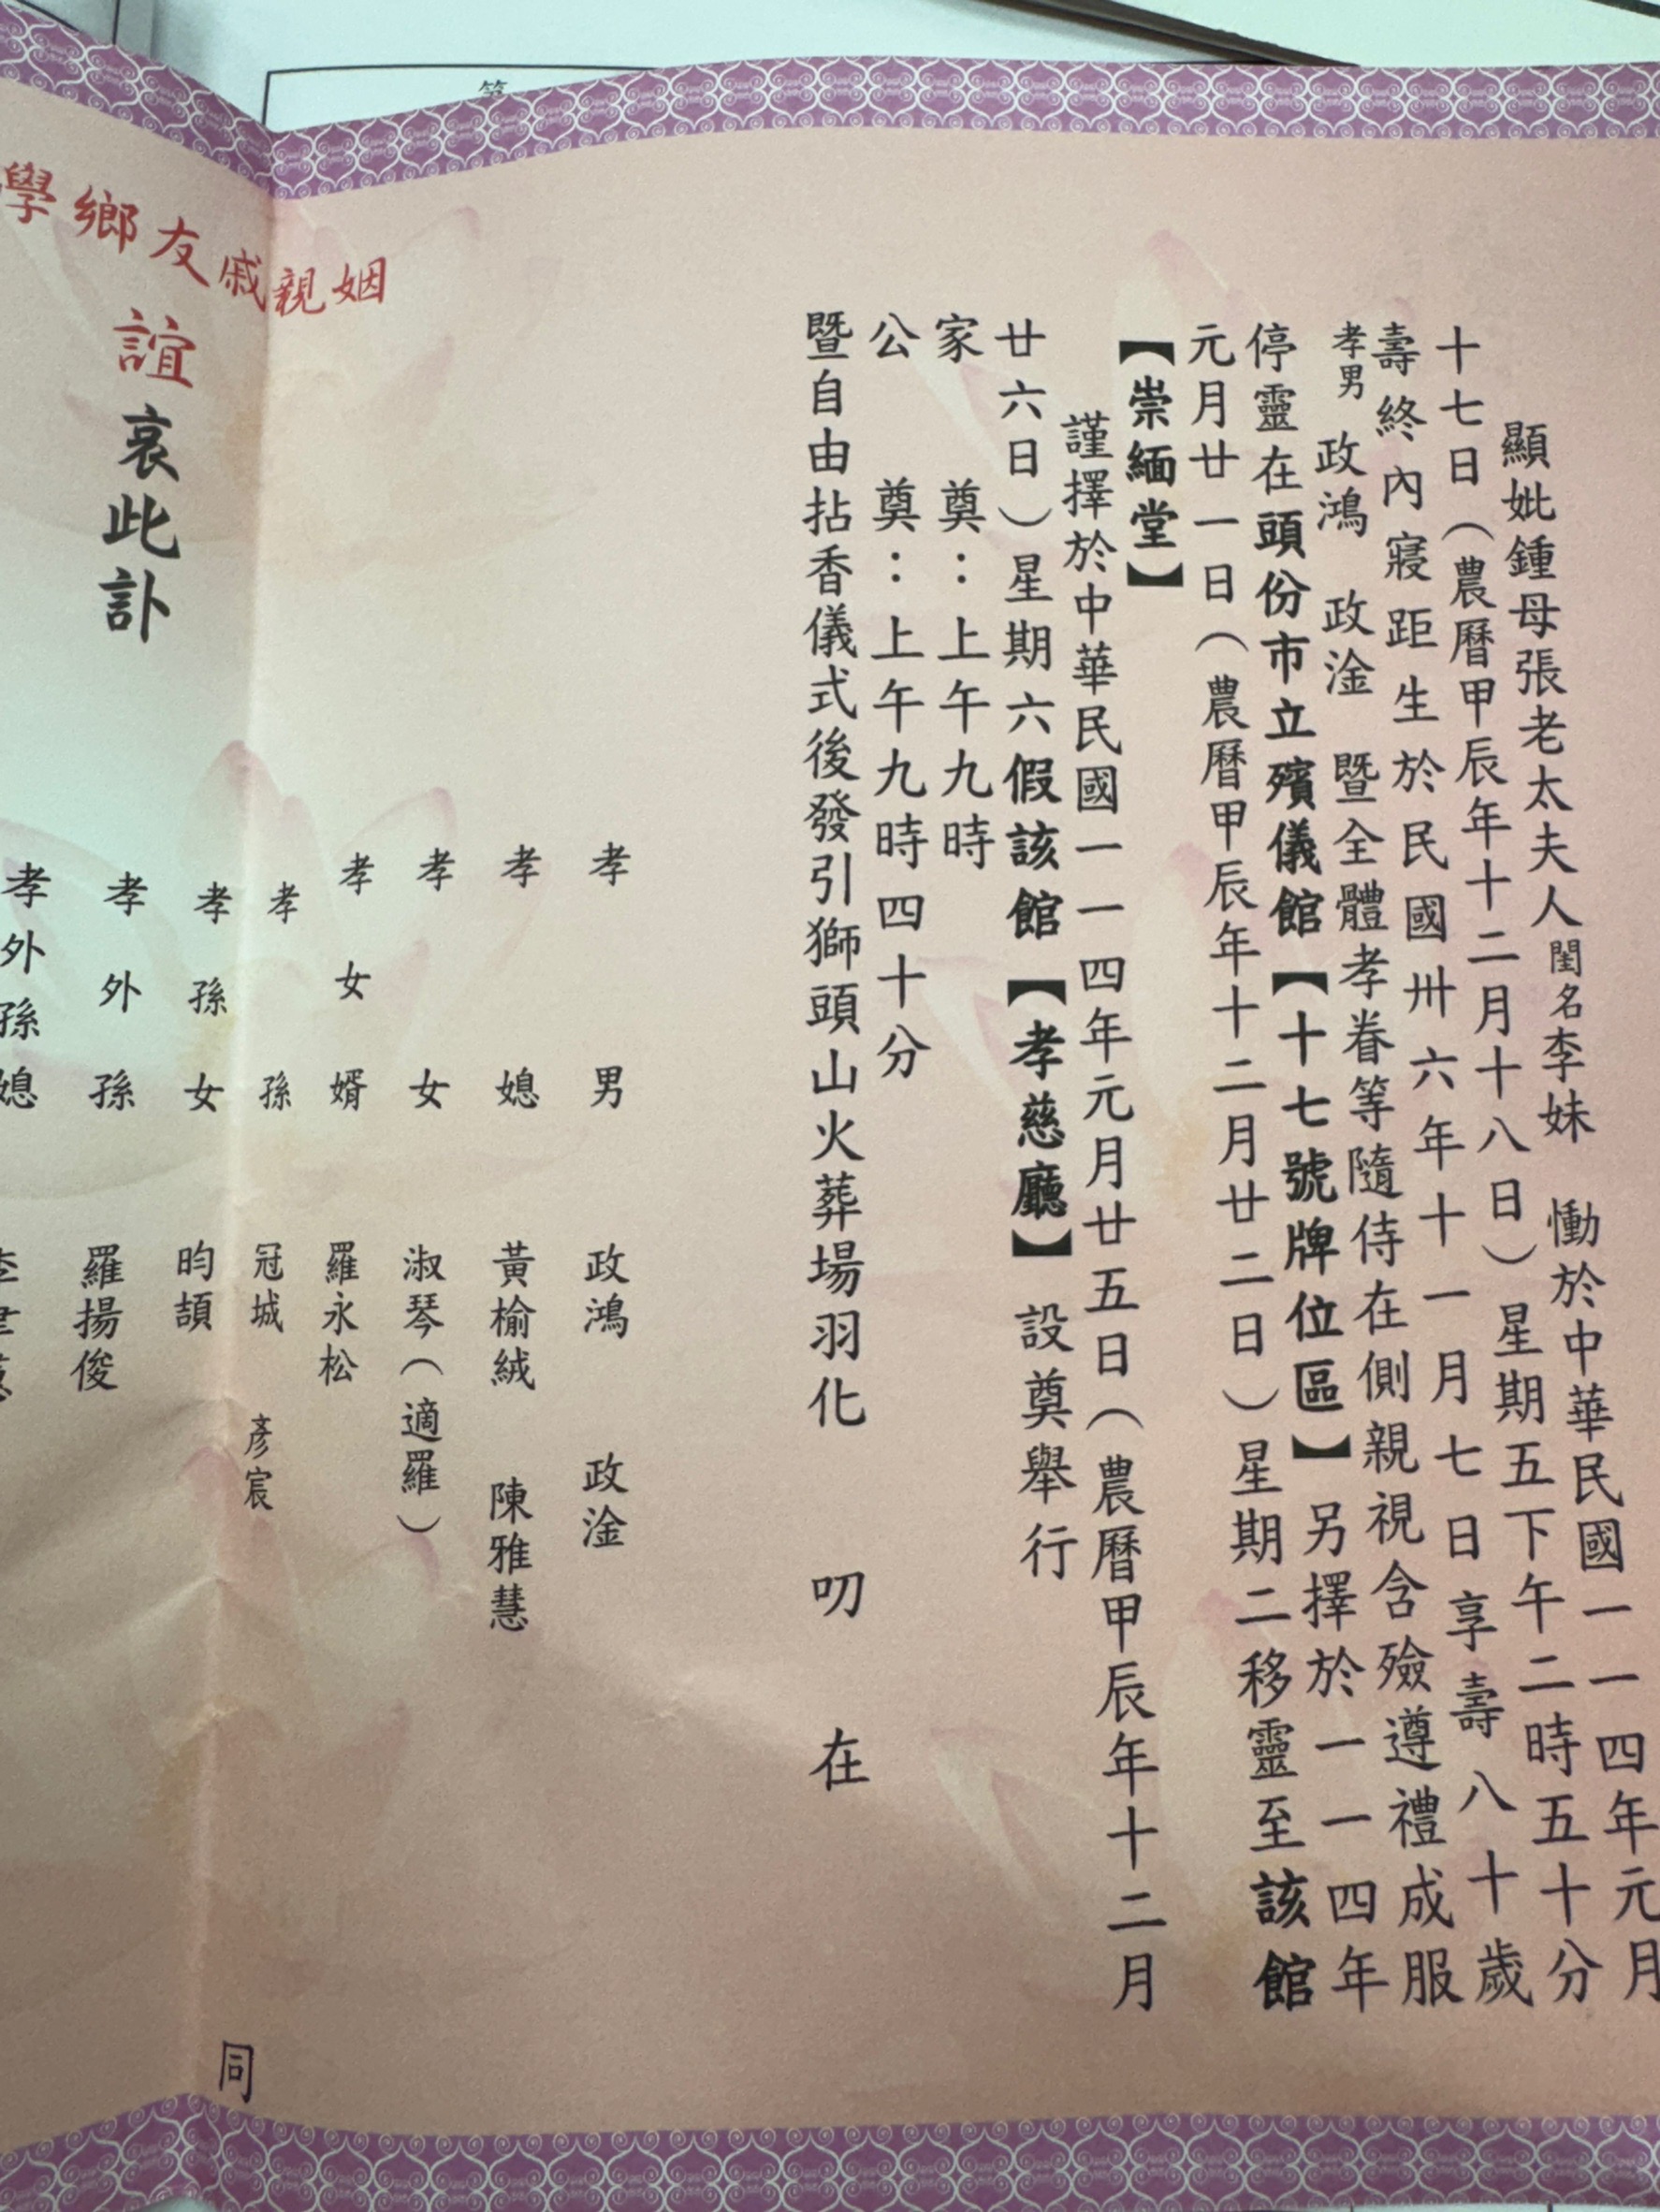 顯妣鍾母張老太夫人閨名李妹 慟於中華民國一一四年元月
十七日（農曆甲辰年十二月十八日）星期五下午二時五十分
壽終內寢距生於民國卅六年十一月七日享壽八十歲
孝男 政鴻 政淦 暨全體孝眷等隨侍在側親視含殮遵禮成服
停靈在頭份市立殯儀館【十七號牌位區】另擇於一一四年
元月廿一日（農曆甲辰年十二月廿二日）星期二移靈至該館
【崇緬堂】
謹擇於中華民國一一四年元月廿五日（農曆甲辰年十二月
廿六日）星期六假該館【孝慈廳】設奠舉行
家 奠：上午九時
公 奠：上午九時四十分
暨自由拈香儀式後發引獅頭山火葬場羽化 叨 在
孝男 政鴻 政淦
孝媳 黃榆絨 陳雅慧
孝女 淑琴（適羅）
孝女婿 羅永松
孝孫 冠城 彥宸
孝孫女 昀頡
孝外孫 羅揚俊
孝外孫媳
姻親戚友鄉學
誼哀此訃
同